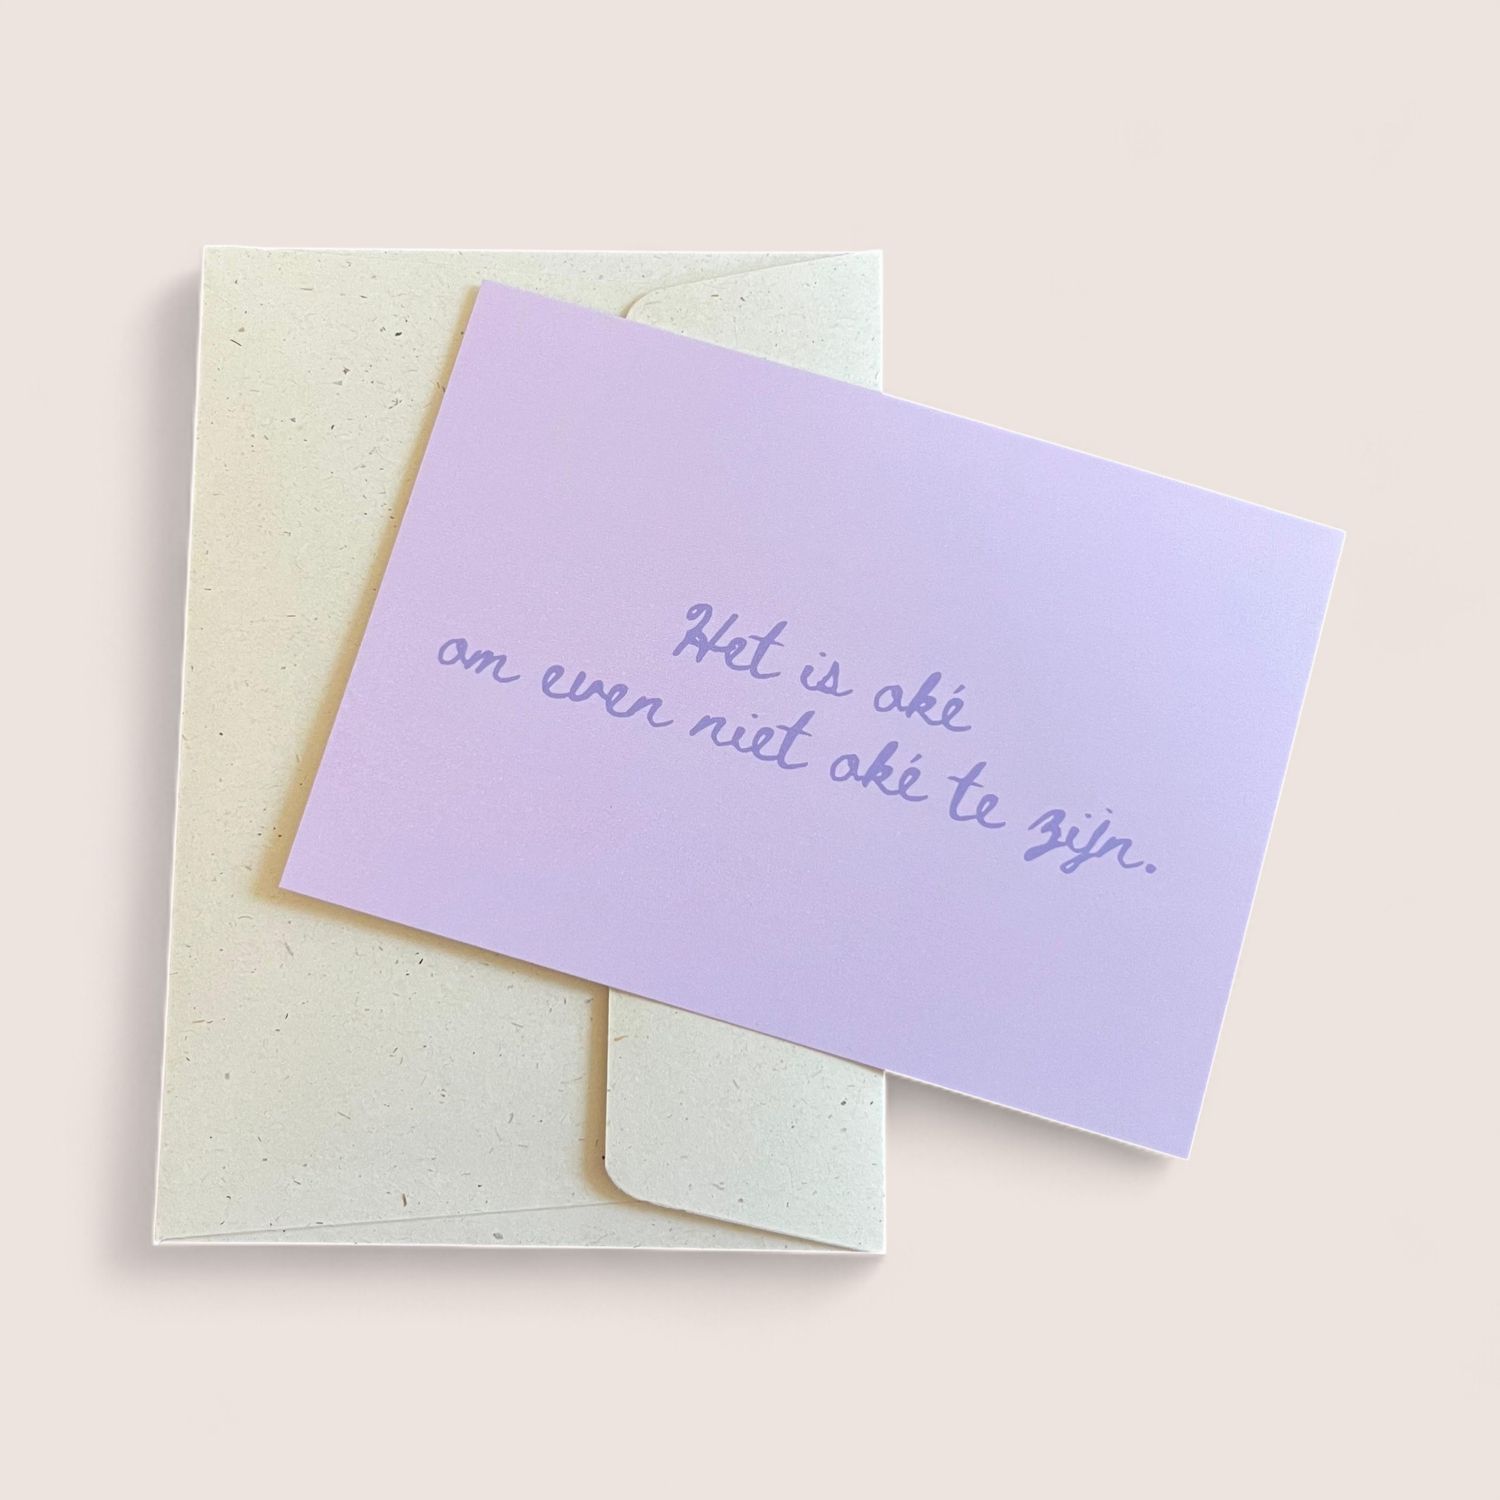 Het is oké
om even niet oké te zijn.